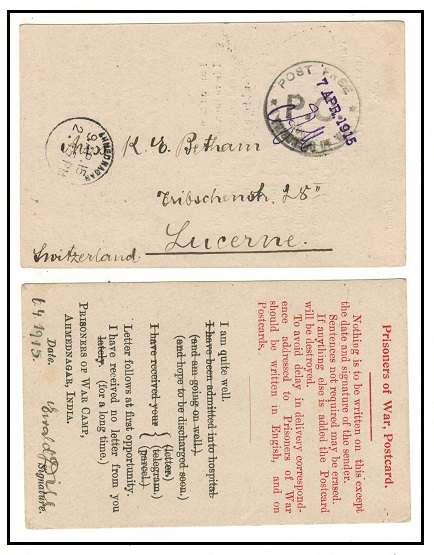 POST FREE
P.C.
7 APR. 1915
AHMEDNAGAR
K. E. Betham
Tribschenstr. 28
Lucerne.
Switzerland
Prisoners of War, Postcard.
Nothing is to be written on this except
the date and signature of the sender.
Sentences not required may be erased.
If anything else is added the Postcard
will be destroyed.
To avoid delay in delivery correspond-
ence addressed to Prisoners of War
should be written in Engish, and on
Postcards.
I am quite well.
I have been admitted into hospital
(and am going on well.)
(and hope to be discharged soon.)
I have received your
(letter.)
(telegram.)
(parcel.)
Letter follows at first opportunity.
I have received no letter from you
lately. (for a long time.)
PRISONERS OF WAR CAMP,
AHMEDNAGAR, INDIA.
Date.
6.4.1915.
Signature.